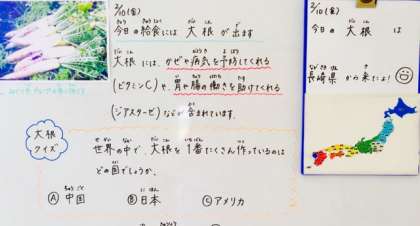 2/10(金)
今日の給食には 大根 が出ます
大根 には、かぜや病気を予防してくれる
(ビタミンC)や、胃や腸の働きを助けてくれる
(ジアスターゼ)などが 含まれています。
大根
クイズ
世界の中で、大根を1番たくさん作っているのは
どの国でしょうか。
Ⓐ 中国 Ⓑ 日本 Ⓒ アメリカ
2/10(金)
今日の 大根 は
長崎県 から来たよ!